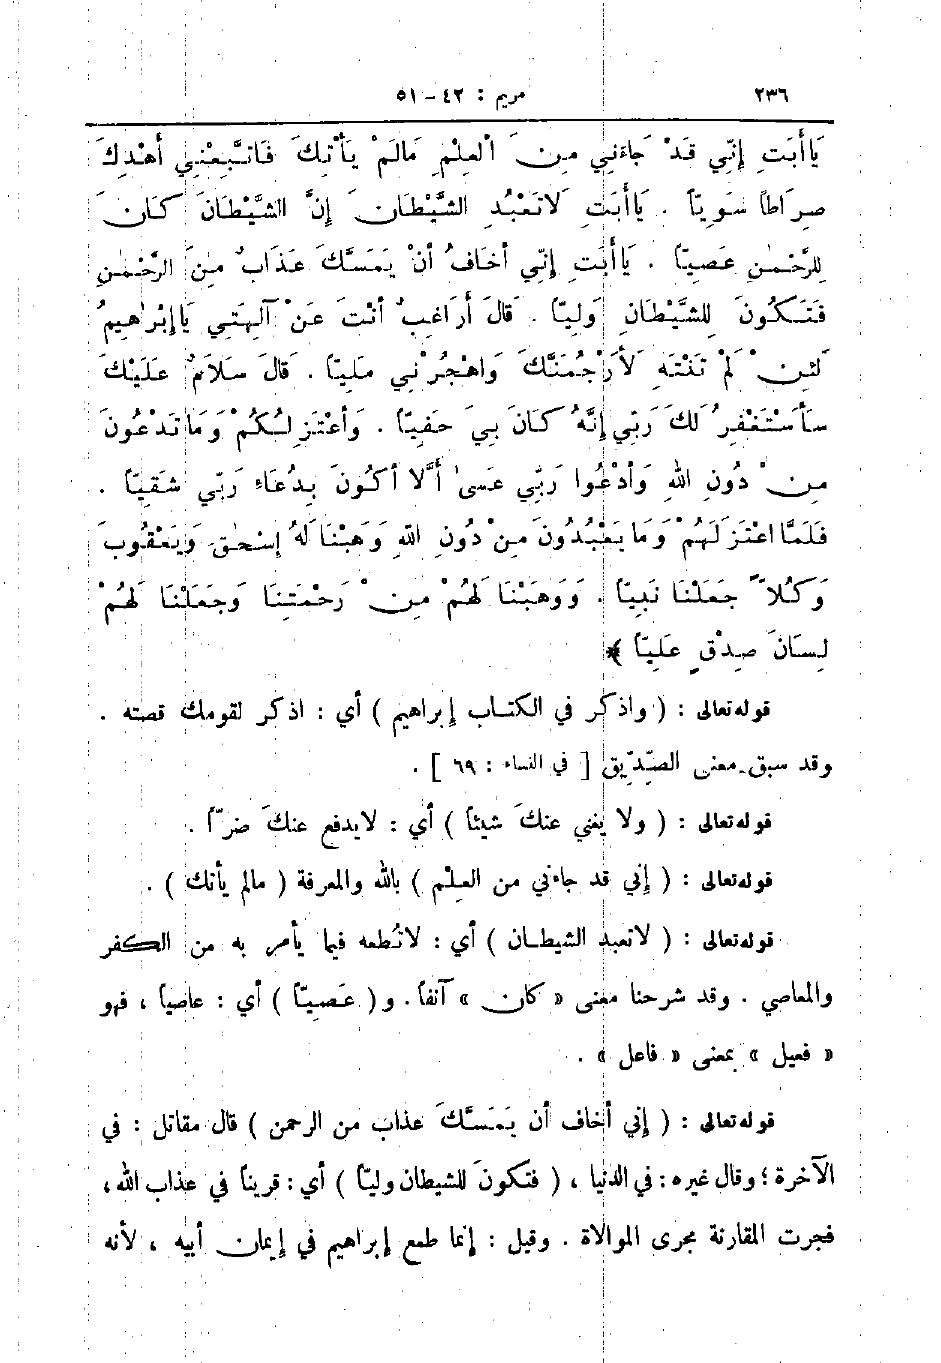 ٢٣٦ مريم : ٤٢ – ٥١
يَا أَبَتِ إِنِّي قَدْ جَاءَنِي مِنَ الْعِلْمِ مَالَمْ يَأْتِكَ فَاتَّبِعْنِي أَهْدِكَ
صِرَاطاً سَوِيّاً . يَا أَبَتِ لَاتَعْبُدِ الشَّيْطَانَ إِنَّ الشَّيْطَانَ كَانَ
لِلرَّحْمٰنِ عَصِيّاً . يَا أَبَتِ إِنِّي أَخَافُ أَنْ يَمَسَّكَ عَذَابٌ مِنَ الرَّحْمٰنِ
فَتَكُونَ لِلشَّيْطَانِ وَلِيّاً . قَالَ أَرَاغِبٌ أَنْتَ عَنْ آلِهَتِي يَا إِبْرَاهِيمُ
لَئِنْ لَمْ تَنْتَهِ لَأَرْجُمَنَّكَ وَاهْجُرْنِي مَلِيّاً . قَالَ سَلَامٌ عَلَيْكَ
سَأَسْتَغْفِرُ لَكَ رَبِّي إِنَّهُ كَانَ بِي حَفِيّاً . وَأَعْتَزِلُكُمْ وَمَا تَدْعُونَ
مِنْ دُونِ اللهِ وَأَدْعُوا رَبِّي عَسَىٰ أَلَّا أَكُونَ بِدُعَاءِ رَبِّي شَقِيّاً .
فَلَمَّا اعْتَزَلَهُمْ وَمَا يَعْبُدُونَ مِنْ دُونِ اللهِ وَهَبْنَا لَهُ إِسْحٰقَ وَيَعْقُوبَ
وَكُلّاً جَعَلْنَا نَبِيّاً . وَوَهَبْنَا لَهُمْ مِنْ رَحْمَتِنَا وَجَعَلْنَا لَهُمْ
لِسَانَ صِدْقٍ عَلِيّاً ﴾
قوله تعالى : ( واذكر في الكتاب إبراهيم ) أي : اذكر لقومك قصته .
وقد سبق معنى الصِّدِّيق [ في النساء : ٦٩ ] .
قوله تعالى : ( ولا يغني عنكَ شيئاً ) أي : لايدفع عنكَ ضرّاً .
قوله تعالى : ( إني قد جاءني من العِلْم ) بالله والمعرفة ( مالم يأتك ) .
قوله تعالى : ( لاتعبد الشيطان ) أي : لاتُطعه فيما يأمر به من الكفر
والمعاصي . وقد شرحنا معنى « كان » آنفاً . و ( عَصيّاً ) أي : عاصياً ، فهو
« فعيل » بمعنى « فاعل » .
قوله تعالى : ( إني أخاف أن يَمَسَّكَ عذاب من الرحمن ) قال مقاتل : في
الآخرة ؛ وقال غيره : في الدنيا ، ( فتكونَ للشيطان وليّاً ) أي : قريناً في عذاب الله ،
فجرت المقارنة مجرى الموالاة . وقيل : إنما طمع إبراهيم في إيمان أبيه ، لأنه